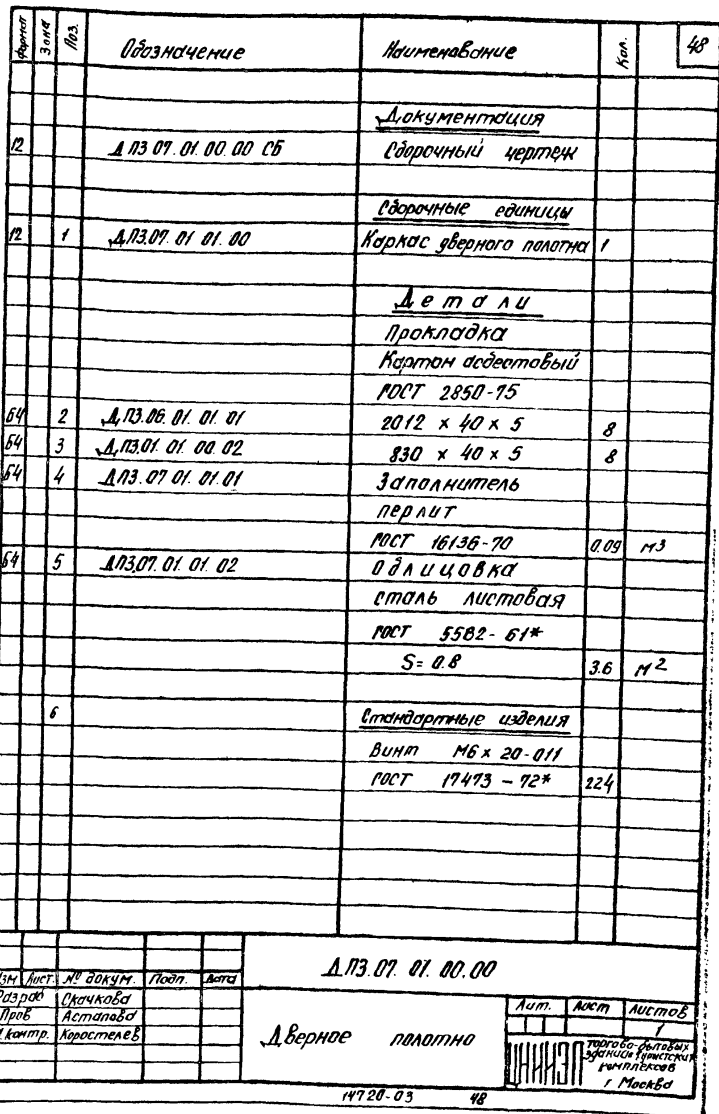 Формат Зона Поз. Обозначение Наименование Кол. 48
Документация
12 ДПЗ 07.01.00.00 СБ Сборочный чертеж
Сборочные единицы
12 1 ДПЗ.07.01 01.00 Каркас дверного полотна 1
Детали
Прокладка
Картон асбестовый
ГОСТ 2850-75
БЧ 2 ДПЗ.06.01.01.01 2012 х 40 х 5 8
БЧ 3 ДПЗ.01.01.00.02 830 х 40 х 5 8
БЧ 4 ДПЗ.07 01.01.01 Заполнитель
перлит
ГОСТ 16136-70 0.09 м3
БЧ 5 ДПЗ.07.01.01.02 Облицовка
сталь листовая
ГОСТ 5582-61*
S=0.8 3.6 м2
6 Стандартные изделия
Винт М6 х 20-011
ГОСТ 17473-72* 224
ДПЗ.07.01.00.00
Изм Лист. № докум. Подп. Дата
Разраб Скачкова
Пров Астапова
Н.контр. Коростелев
Дверное полотно
Лит. Лист Листов
1
ЦНИИЭП торгово-бытовых
зданий и туристских
комплексов
г Москва
14720-03 48